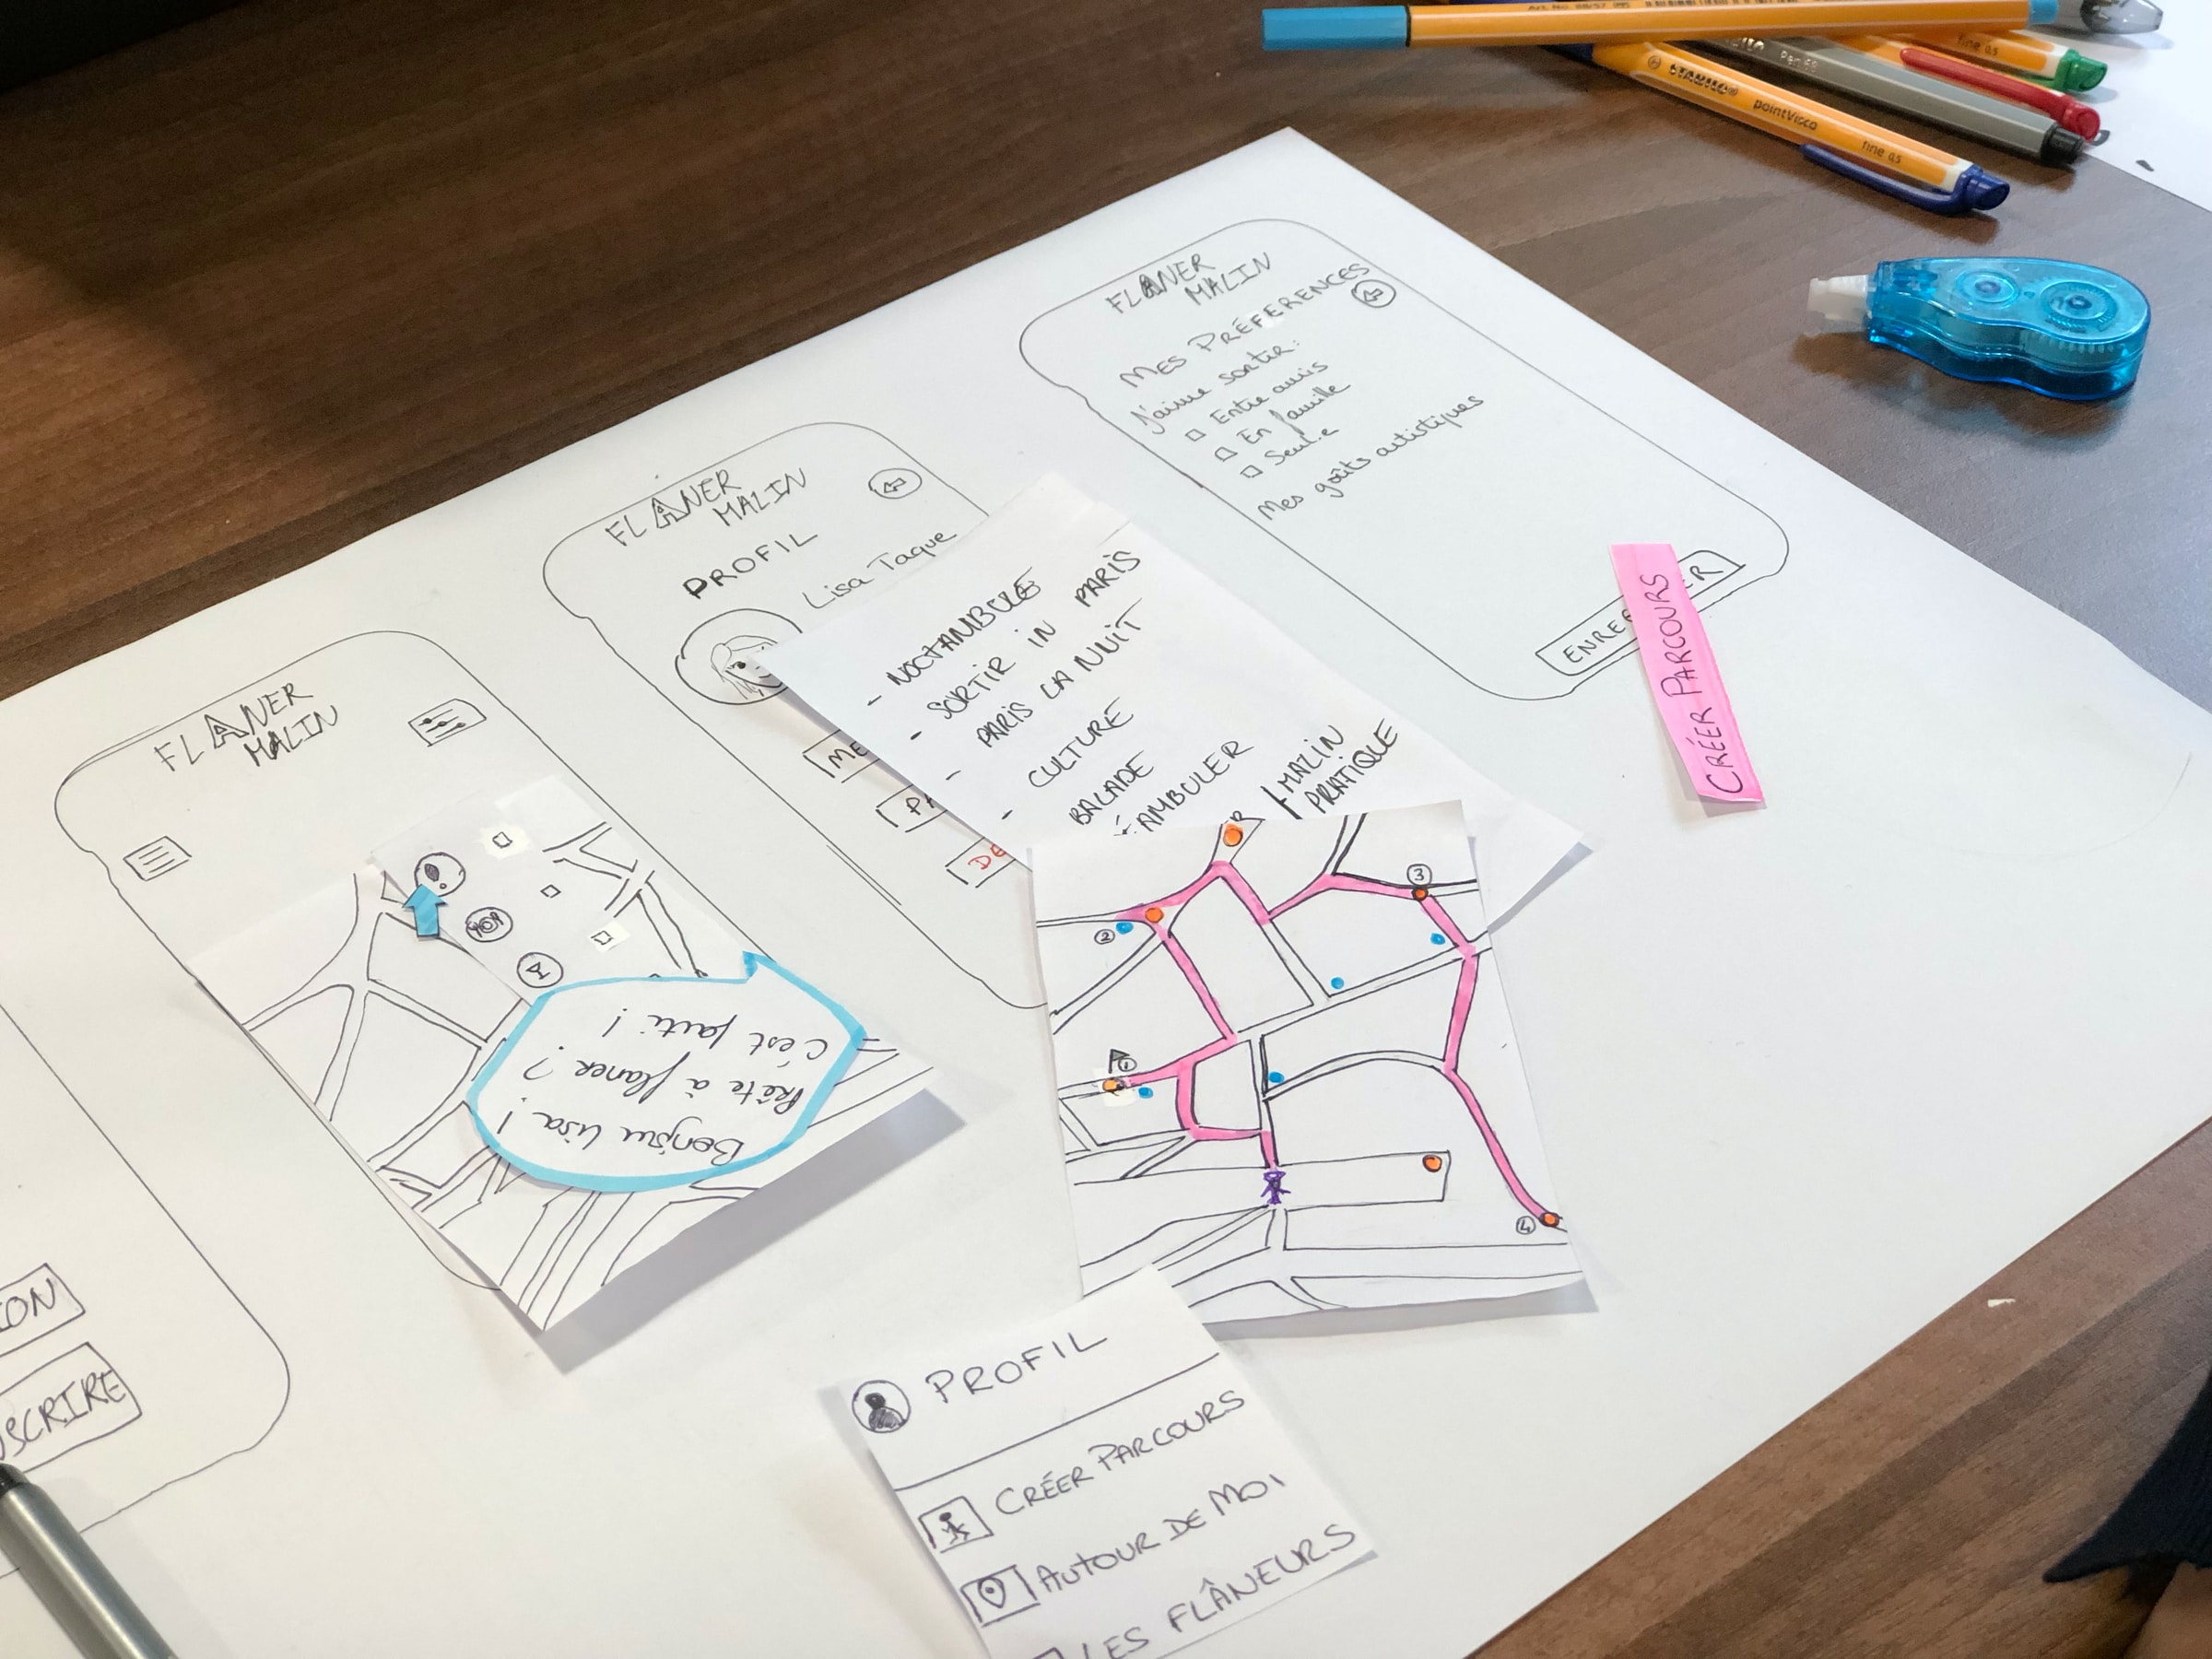 FLANER
MALIN
MES PRÉFERENCES
J'aime sortir:
Entre amis
En famille
Seul.e
Mes goûts artistiques
CRÉER PARCOURS
FLANER
MALIN
PROFIL
Lisa Taque
ME
PA
DE
- NOCTAMBULE
- SORTIR IN PARIS
- PARIS LA NUIT
- CULTURE
BALADE
AMBULER
MALIN
PRATIQUE
FLANER
MALIN
Bonjour Lisa!
Prête à flaner?
C'est parti!
1
2
3
4
PROFIL
CRÉER PARCOURS
AUTOUR DE MOI
LES FLÂNEURS
ION
SCRIRE
STABILO®
pointVisco
fine 0.5
fine 0.5
Pen 68